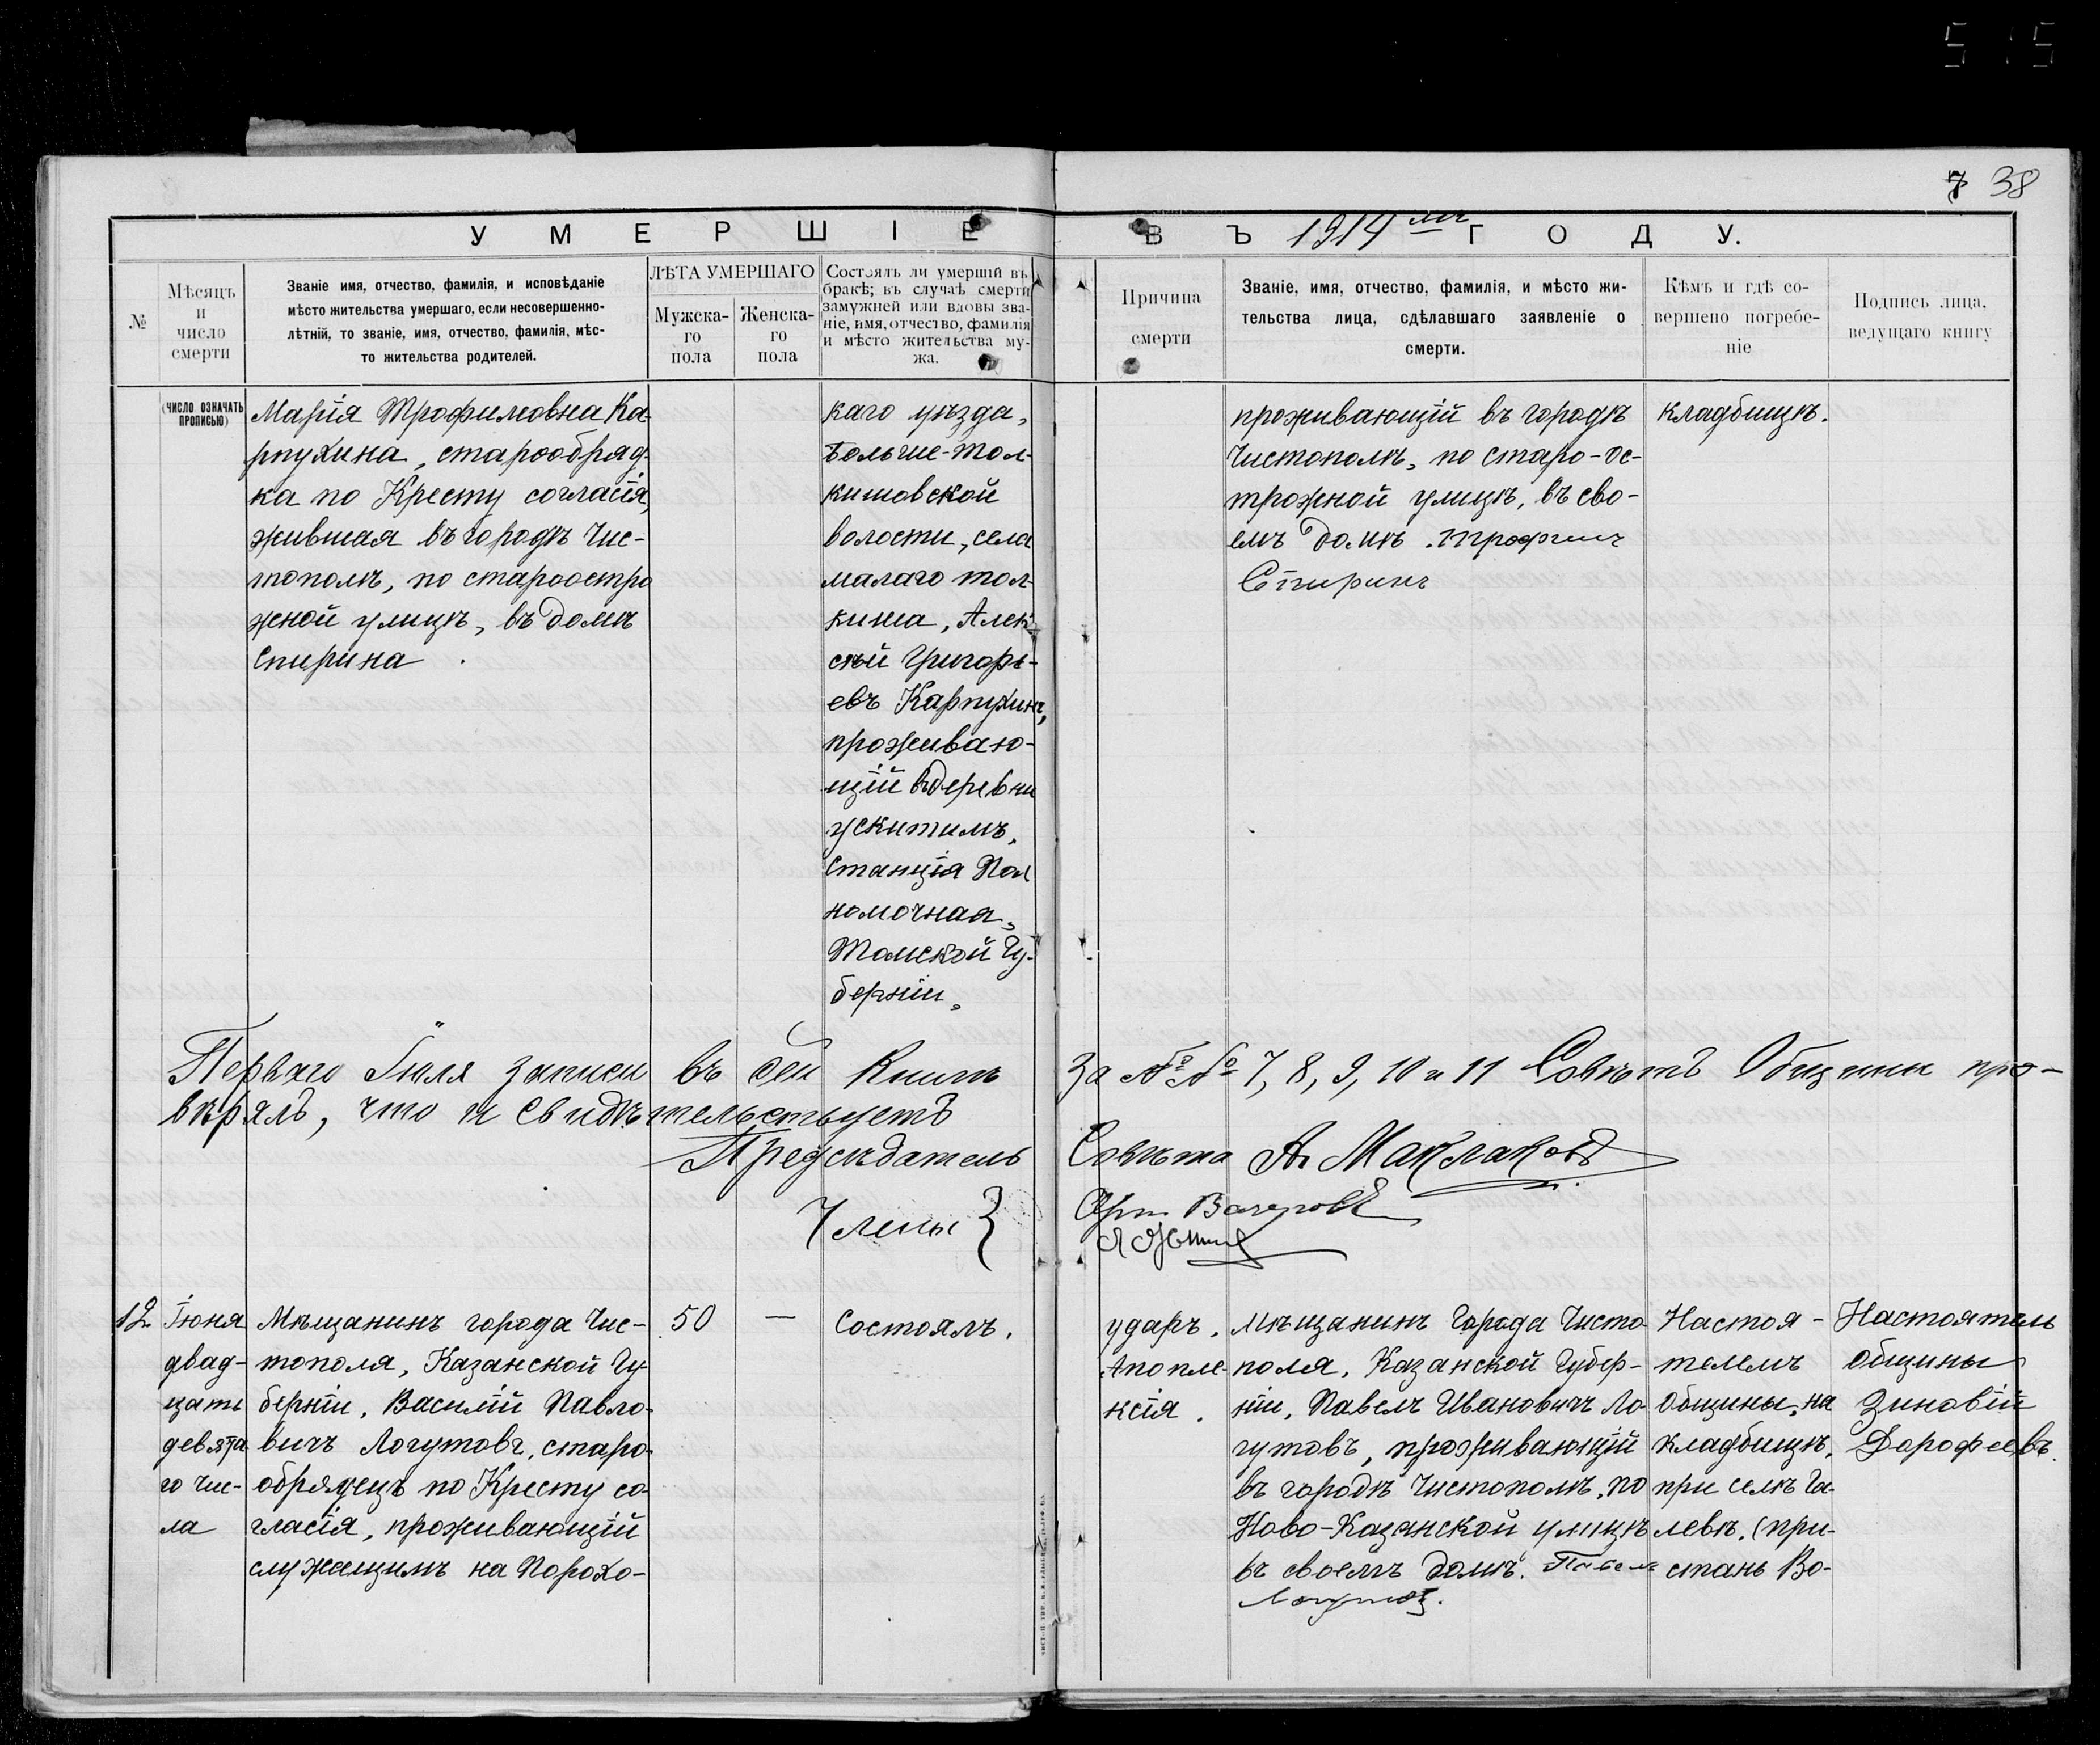 7 38
УМЕРШІЕ
ВЪ 1914 мъ ГОДУ.
№
Мѣсяцъ
и
число
смерти
Званіе имя, отчество, фамилія, и исповѣданіе
мѣсто жительства умершаго, если несовершенно-
лѣтній, то званіе, имя, отчество, фамилія, мѣс-
то жительства родителей.
ЛѢТА УМЕРШАГО
Мужска-
го
пола
Женска-
го
пола
Состоялъ ли умершій въ
бракѣ; въ случаѣ смерти
замужней или вдовы зва-
ніе, имя, отчество, фамилія
и мѣсто жительства му-
жа.
Причина
смерти
Званіе, имя, отчество, фамилія, и мѣсто жи-
тельства лица, сдѣлавшаго заявленіе о
смерти.
Кѣмъ и гдѣ со-
вершено погребе-
ніе
Подпись лица,
ведущаго книгу
(ЧИСЛО ОЗНАЧАТЬ
ПРОПИСЬЮ)
Марія Трофимовна Ка-
рпухина, старообряд-
ка по Кресту согласія,
жившая въ городѣ Чис-
тополѣ, по староостро
жной улицѣ, въ домѣ
Спирина.
каго уѣзда,
Больше-Тол-
кишовской
волости, села
малаго тол-
киша, Алек
сѣй Григорь-
евъ Карпухинъ,
проживаю-
щій въ деревни
ускитимъ,
Станція Пол
номочная,
Томской Гу-
берніи.
проживающій въ городѣ
Чистополѣ, по старо-ос-
трожной улицѣ, въ сво-
емъ домѣ. Трофимъ
Спиринъ
кладбищѣ.
Перваго Іюля записи въ сей книгѣ за №№ 7, 8, 9, 10 и 11 Совѣтъ Общины про-
вѣрялъ, что и свидѣтельствуетъ
Предсѣдатель Совѣта А. Маклаковъ
Члены }
12
Іюня
двад-
цать
девята
го чис-
ла
Мѣщанинъ города Чис-
тополя, Казанской Гу-
берніи, Василій Павло-
вичъ Логутовъ, старо-
обрядецъ по Кресту со-
гласія, проживающій
служащимъ на Порохо-
50
—
Состоялъ.
ударъ.
Апопле-
ксія.
мѣщанинъ Города Чисто-
поля, Казанской Губер-
ніи, Павелъ Ивановичъ Ло-
гутовъ, проживающій
въ городѣ Чистополѣ, по
Ново-Казанской улицѣ
въ своемъ домѣ. Павелъ
Логутовъ.
Настоя-
телемъ
Общины, на
кладбищѣ,
при селѣ Га-
левѣ. (при-
стань Во-
Настоятель
общины
Зиновій
Дорофеевъ.